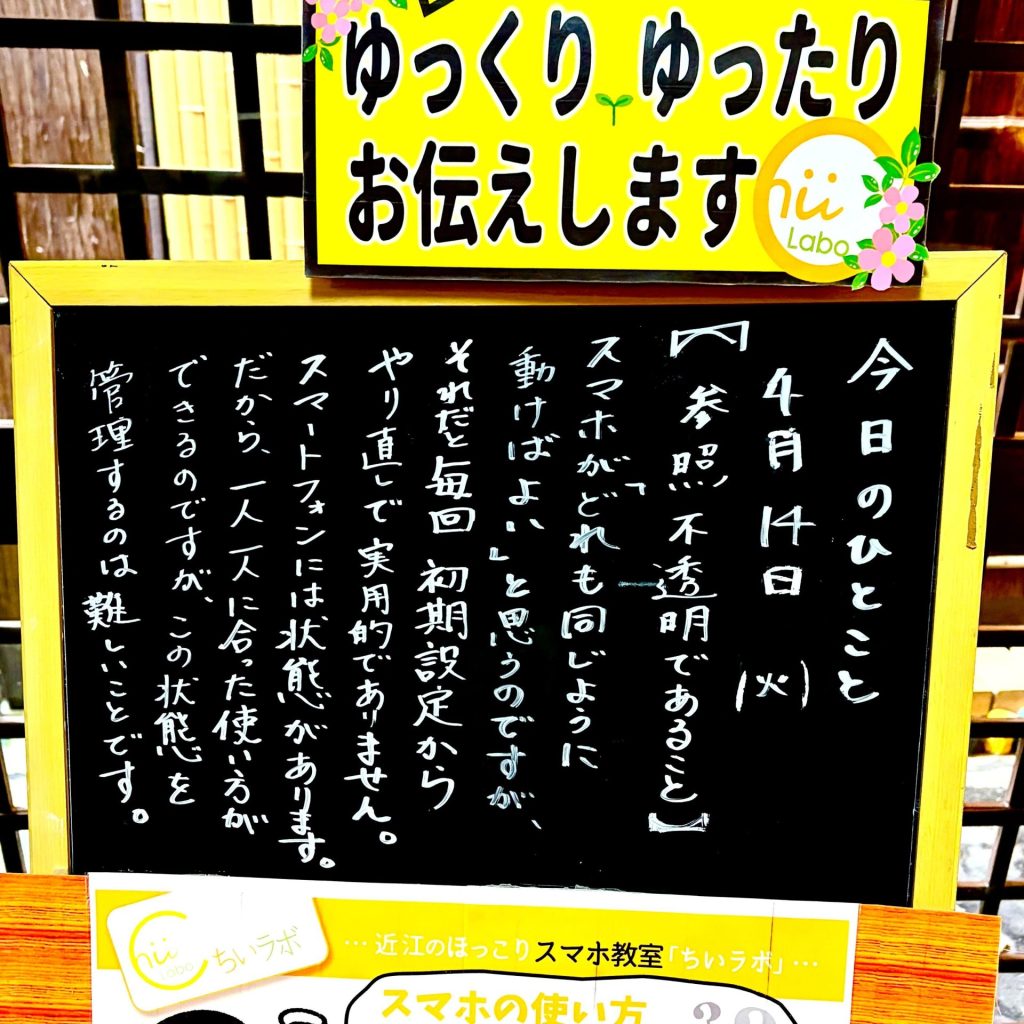 ゆっくり ゆったり
お伝えします
hii
Labo
今日のひとこと
4月14日(火)
【参照不透明であること】
スマホが「どれも同じように
動けばよい」と思うのですが、
それだと毎回 初期設定から
やり直しで実用的でありません。
スマートフォンには状態があります。
だから、一人一人に合った使い方が
できるのですが、この状態を
管理するのは難しいことです。
hii
Labo
ちいラボ
…近江のほっこりスマホ教室「ちいラボ」…
スマホの使い方
??